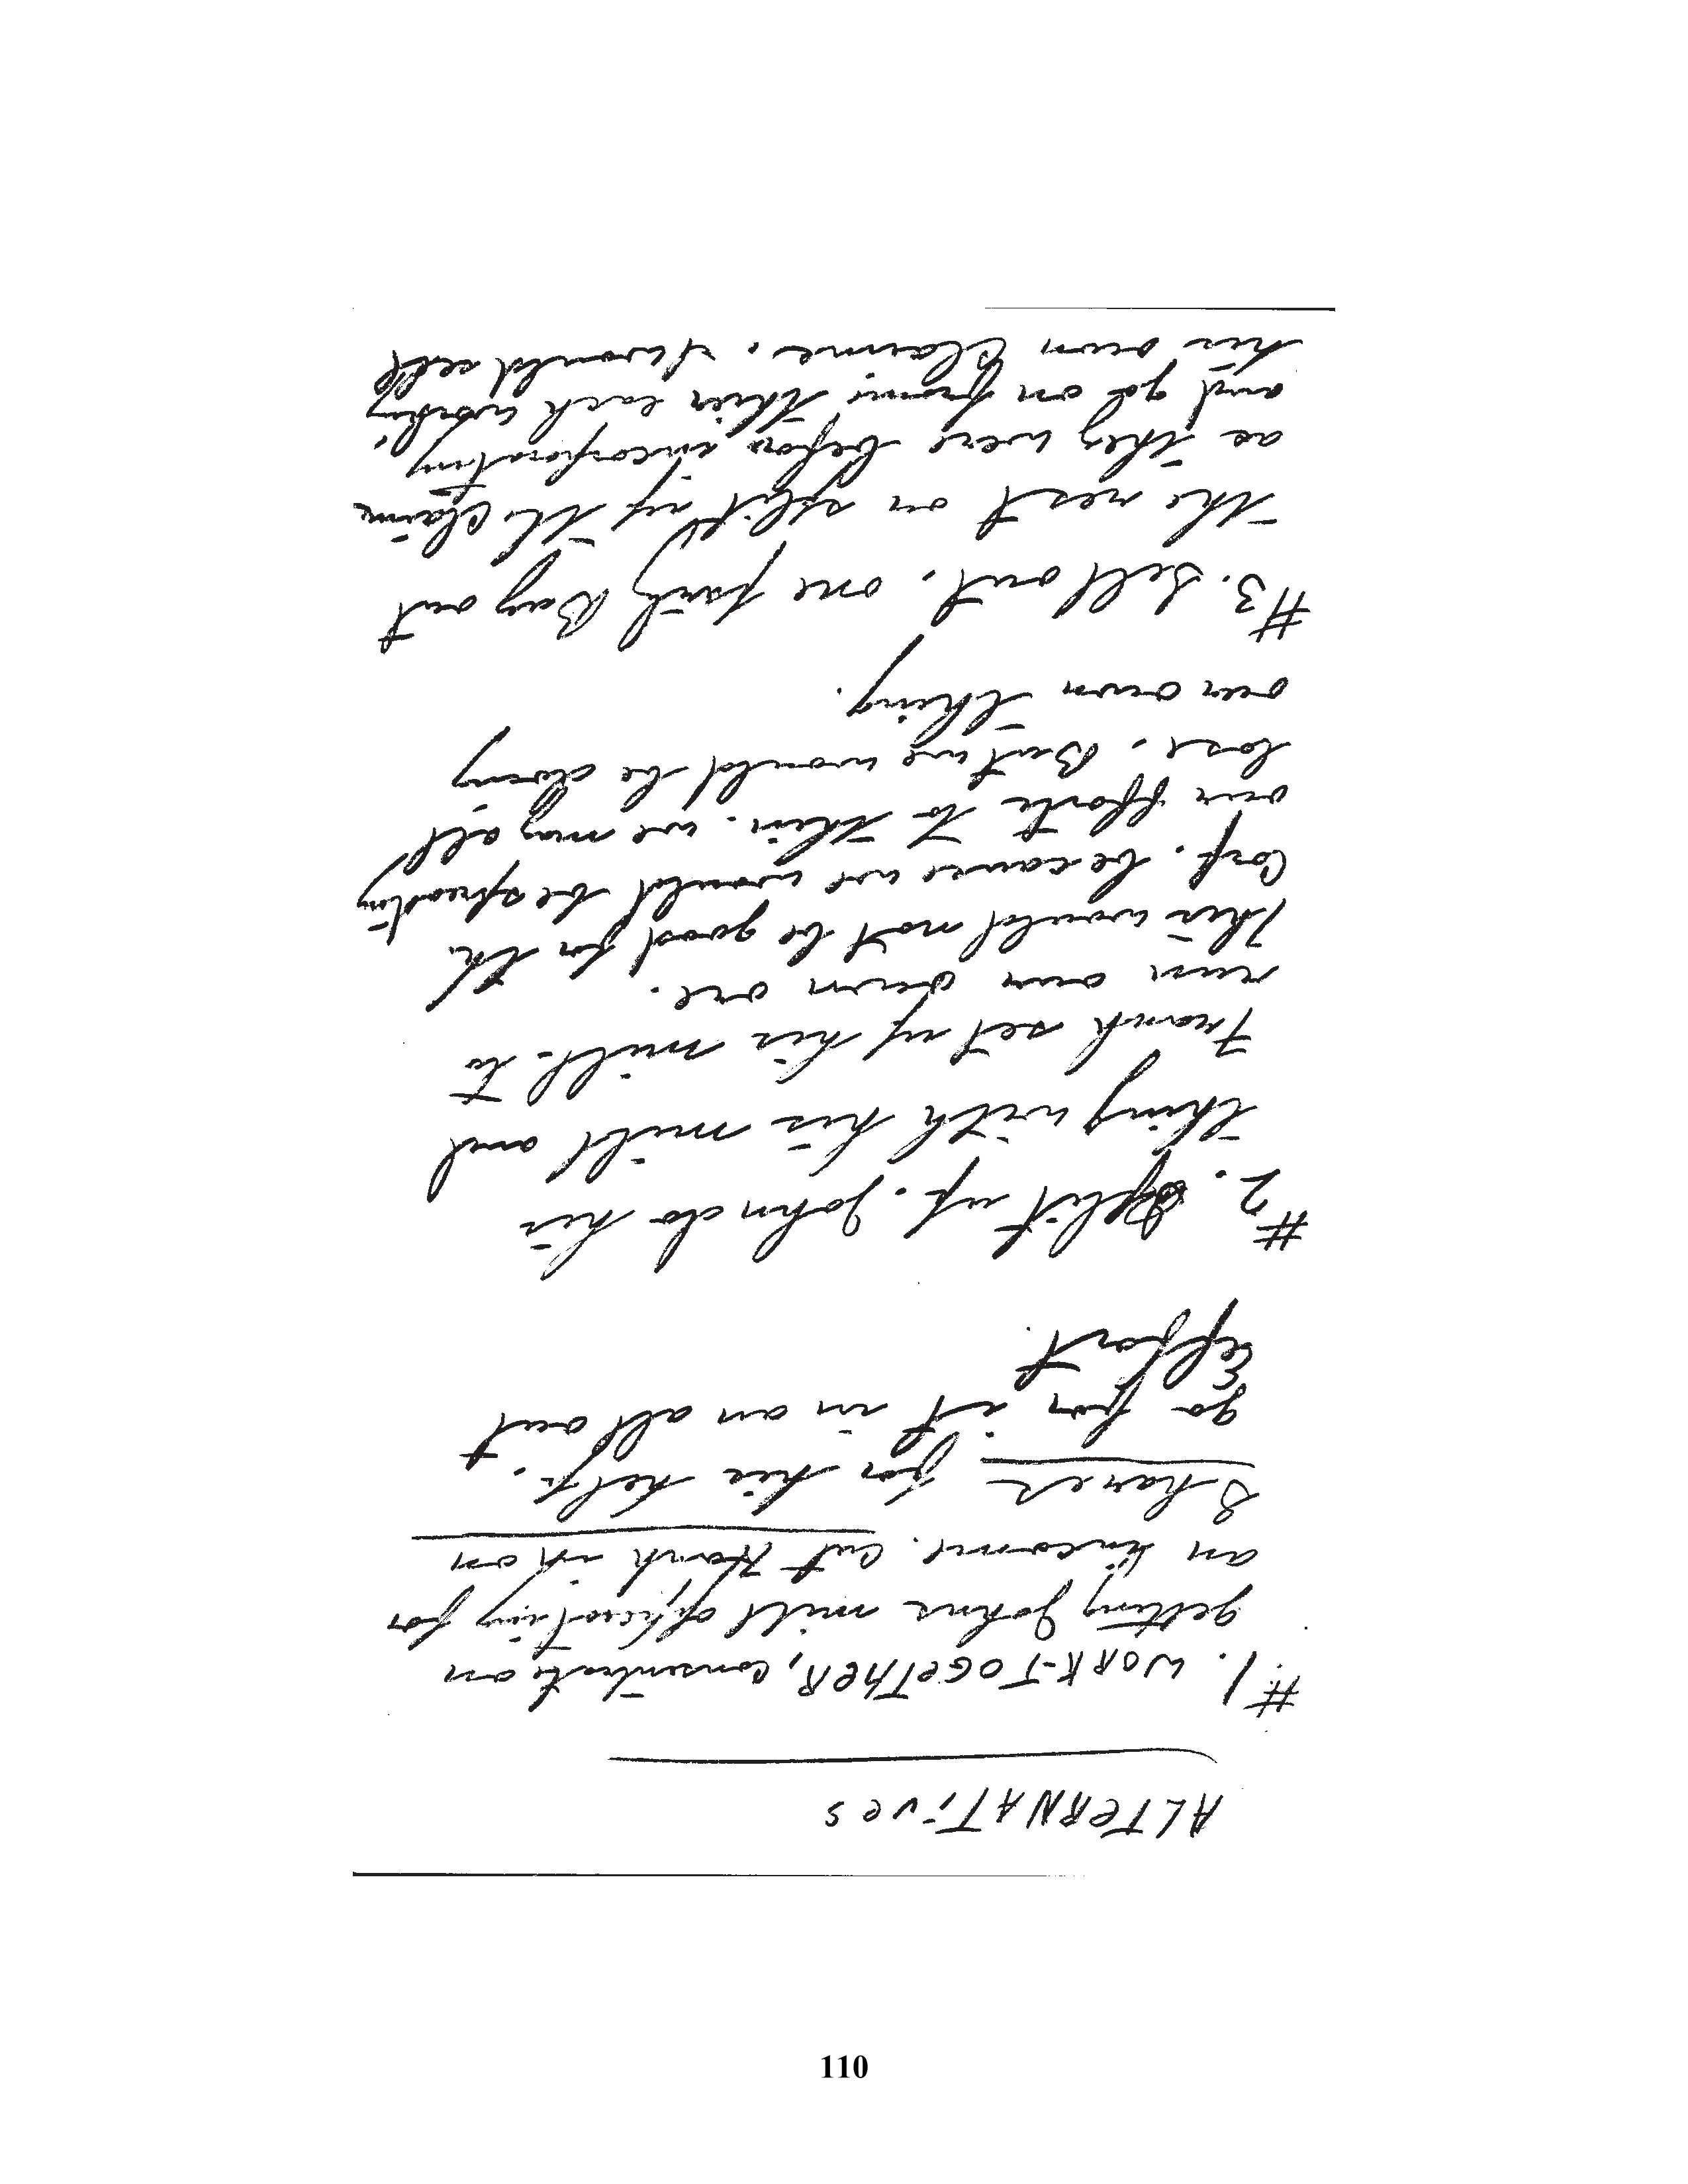 ALTERNATives
#1. WORK-TOGeTHER, consentrate on
getting Johns mill operating for
an income. cut Hank in on
Shares for his help.
go for it in an all out
Effort
#2. Split up. John do his
thing with his mill and
Frank set up his mill- to
run our own ore.
This would not be good for the
Corp. because we would be spreading
our fforts to thin. we may all
lose. But we would be doing
our own thing.
#3. Sell out. one party Buy out
the rest or split up the claims
as they were before incorporating
and go on from their each working
his own claime. I would sell
110